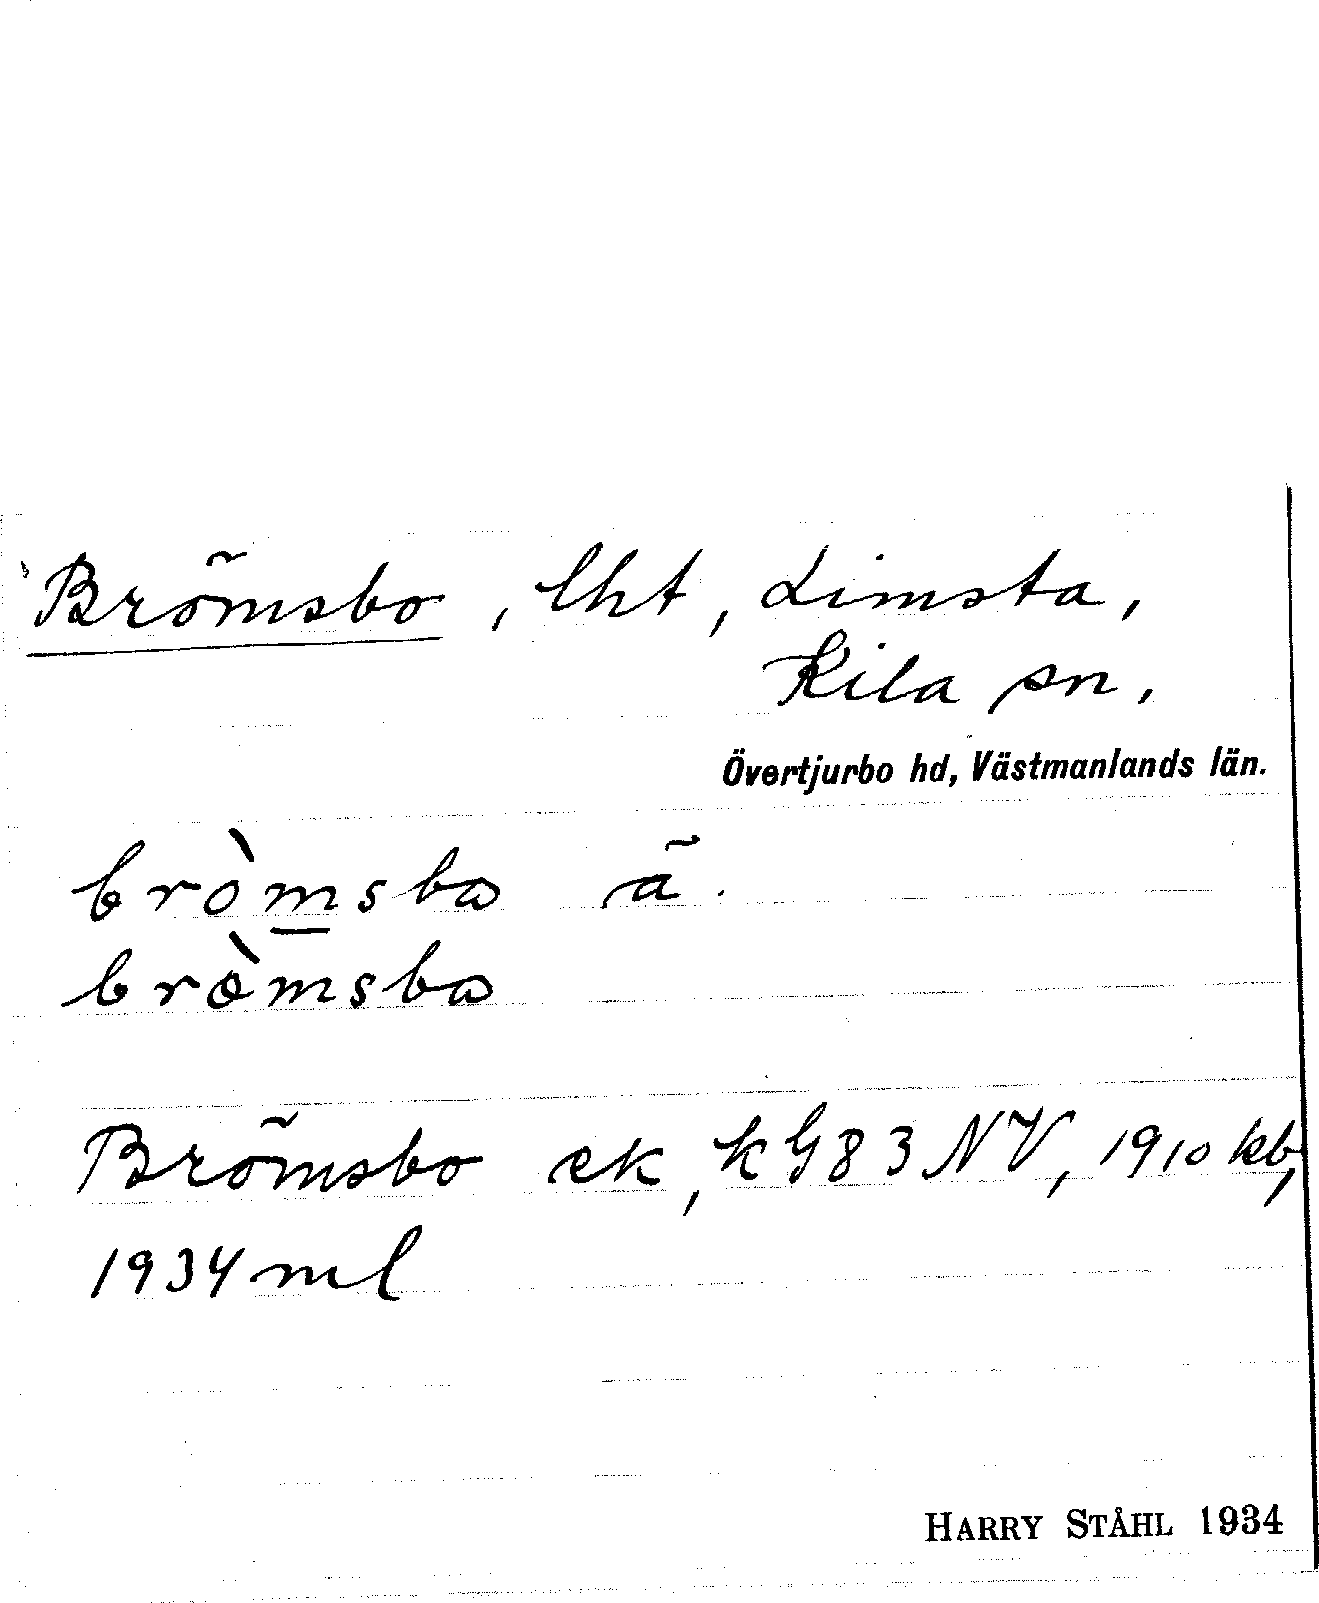 Brömsbo, lht, Limsta,
Kila sn,
Övertjurbo hd, Västmanlands län.
bròmsbω ä.
brömsbω
Brömsbo ek, k G 83 NV, 1910 kb,
1934 ml
HARRY STÅHL 1934